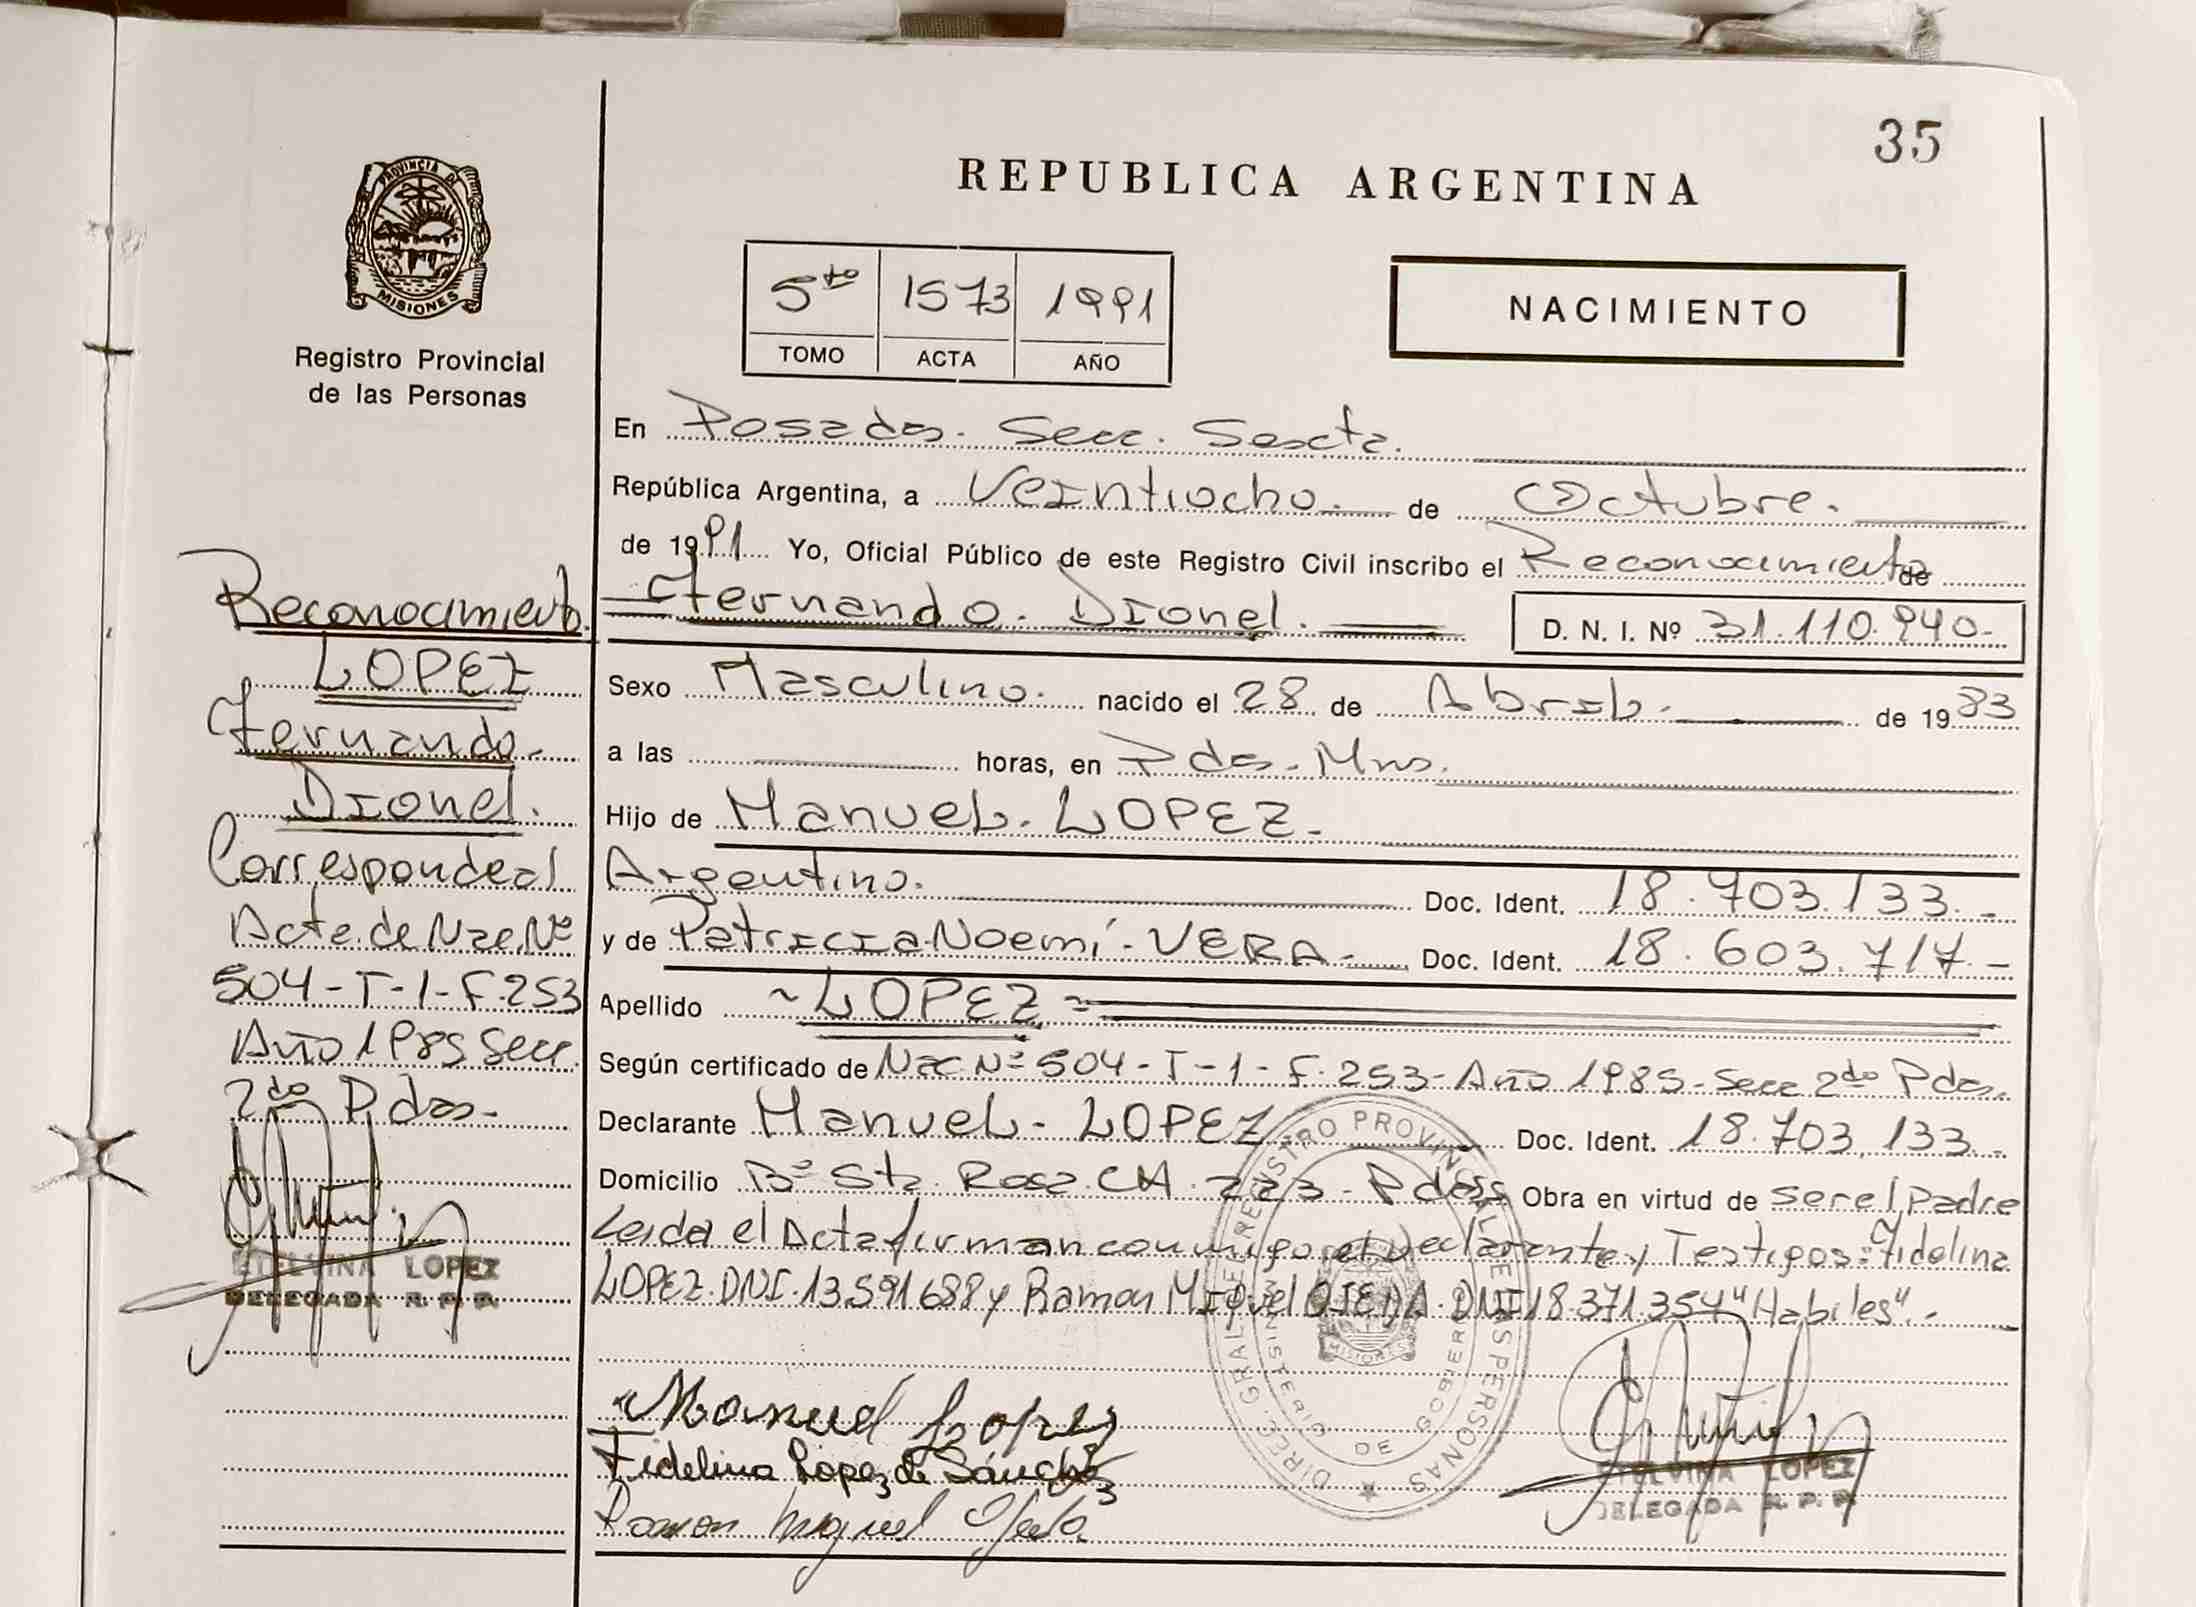 35
REPUBLICA ARGENTINA
PROVINCIA DE
MISIONES
Registro Provincial
de las Personas
5to 1573 1991
TOMO ACTA AÑO
NACIMIENTO
En Posadas. Secc. Sexta.
República Argentina, a Veintiocho. de Octubre.
de 1991 Yo, Oficial Público de este Registro Civil inscribo el Reconocimiento de
Fernando. Dionel. D. N. I. Nº 31.110.940.-
Sexo Masculino. nacido el 28 de Abril. de 1983
a las horas, en Pdas. Mnes.
Hijo de Manuel. LOPEZ.
Argentino. Doc. Ident. 18.703.133.-
y de Patricia Noemí. VERA.- Doc. Ident. 18.603.717.-
Apellido ~LOPEZ=
Según certificado de Nac Nº 504-T-1-F.253-Año 1985-Secc 2do Pdas.
Declarante Manuel- LOPEZ Doc. Ident. 18.703.133.-
Domicilio Bº Sta. Rosa. CA. 223- Pdas. Obra en virtud de ser el Padre
Leida el Acta firman conmigo el Declarante y Testigos: Fidelina
LOPEZ. DNI. 13.591.688 y Ramon Miguel OJEDA. DNI 18.371.354 "Habiles".-
Manuel Lopez
Fidelina Lopez de Sánchez
Ramon Miguel Ojeda
ETELVINA LOPEZ
DELEGADA R. P. P.
DIREC. GRAL. DE REGISTRO PROVINCIAL DE LAS PERSONAS
MINISTERIO DE GOBIERNO
MISIONES
Reconocimiento.
LOPEZ
Fernando.-
Dionel.
Corresponde al
Acta de Nac Nº
504-T-1-F.253
Año 1985 Secc.
2do Pdas.-
ETELVINA LOPEZ
DELEGADA R. P. P.